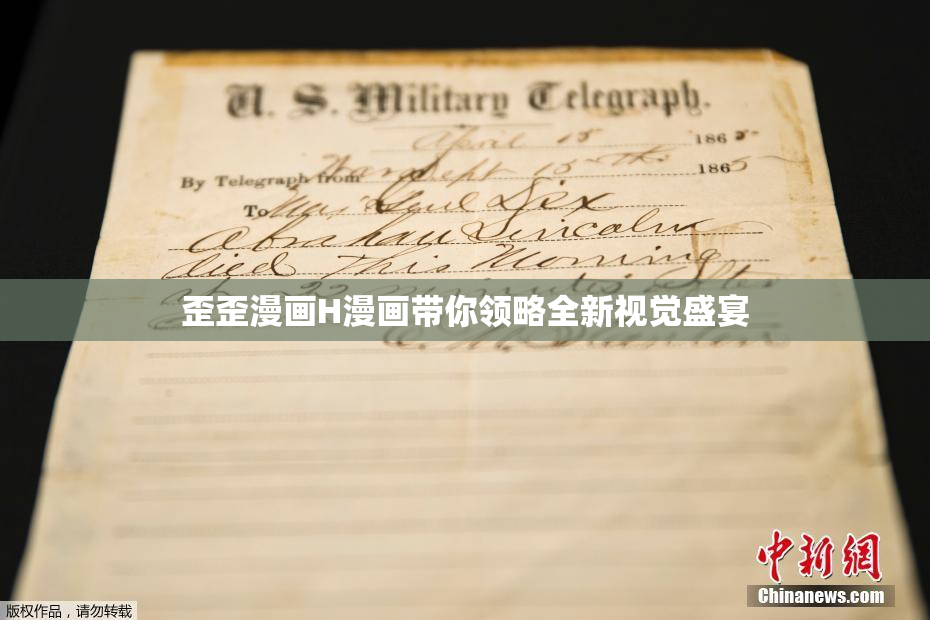 U. S. Military Telegraph.
April 15 1865
By Telegraph from War Dept 15th 1865
To Maj Genl Dix
Abraham Lincoln
died This Morning
at 22 minutes after
歪歪漫画H漫画带你领略全新视觉盛宴
E. M. Stanton
中新网
Chinanews.com
版权作品，请勿转载